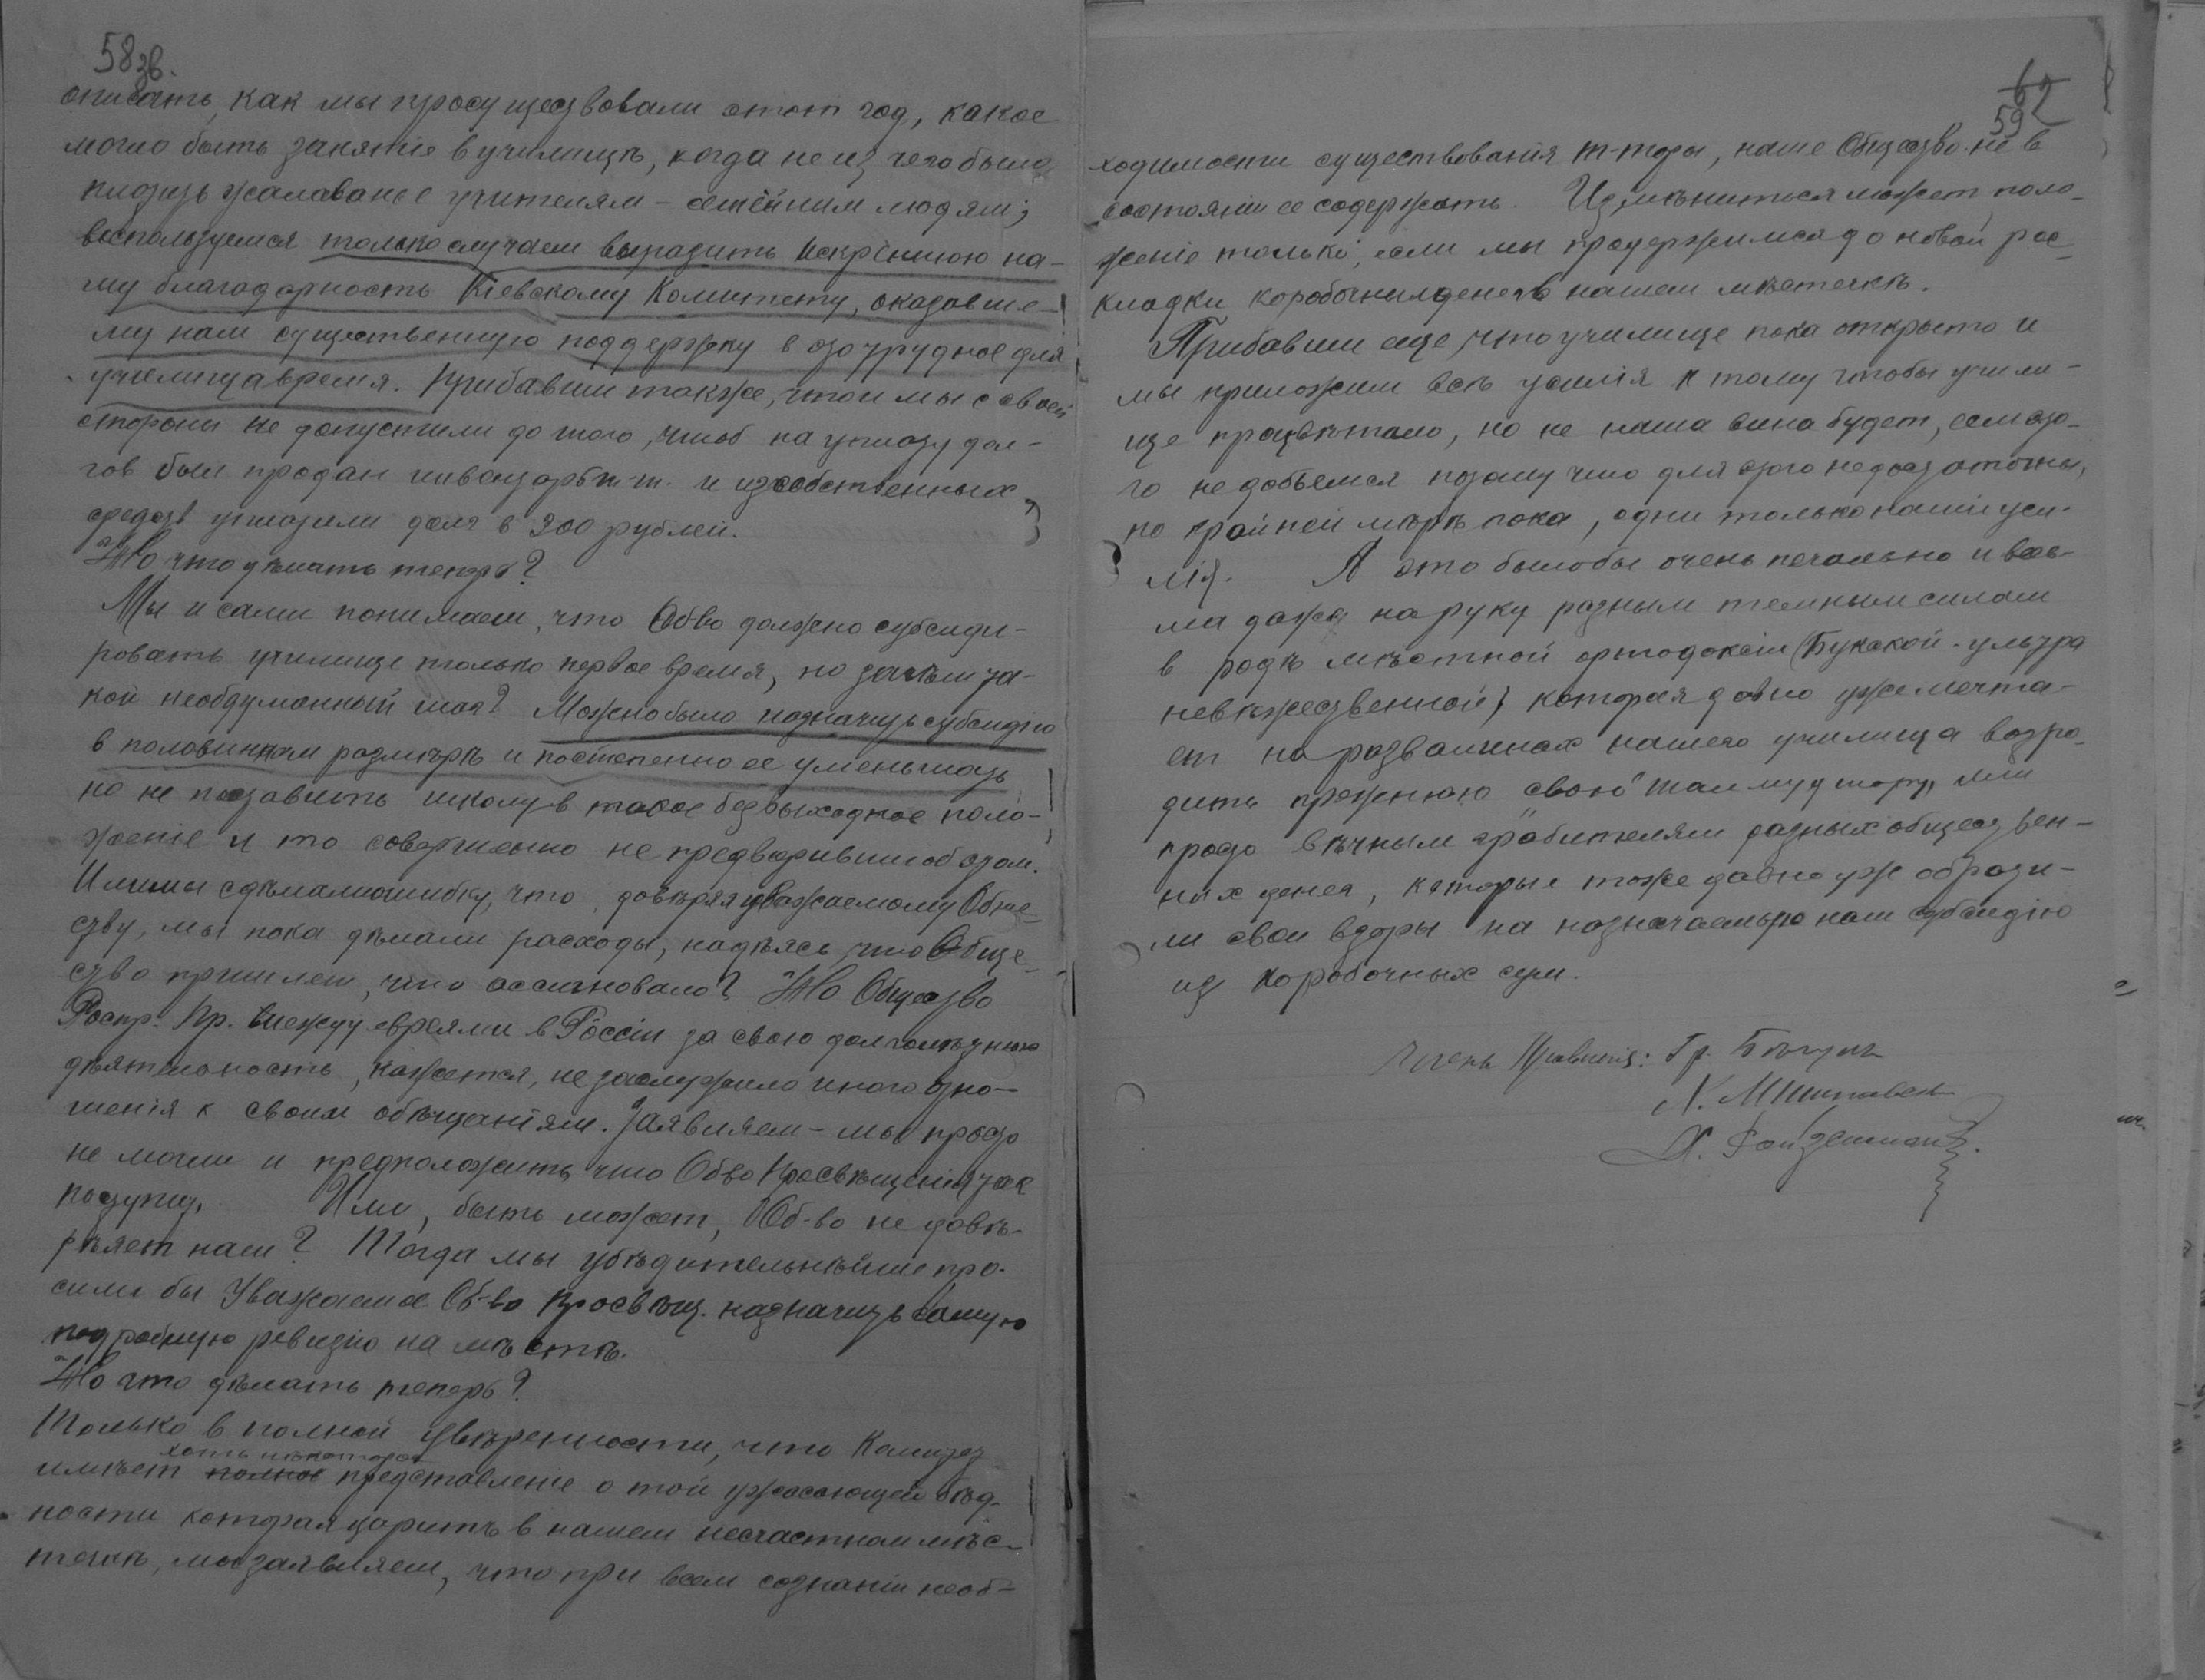 58 зв.
описать, как мы просуществовали этот год, какое
могло быть занятіе в училищѣ, когда не из чего было
платить жалаванье учителям – семейним людям;
воспользуемся только случаем выразить искреннюю на-
шу благодарность Кіевскому Комитету, оказавше-
му нам существенную поддержку в это трудное для
училища время. Прибавим также, что и мы с своей
стороны не допустили до того, чтоб на уплату дол-
гов был продан инвентарь т-т. и из собственных
средств уплатили долг в 300 рублей.
Но что дѣлать теперь?
Мы и сами понимаем, что Об-во должно субсиди-
ровать училище только первое время, но зачѣм та-
кой необдуманный шаг? Можно было назначить субсидію
в половинном размѣрѣ и постепенно ее уменьшать
но не поставить школу в такое безвыходное поло-
женіе и то совершенно не предваривши об этом.
Или мы сдѣлали ошибку, что, довѣряя уважаемому Обще-
ству, мы пока дѣлали расходы, надѣясь что Обще-
ство пришлет, что ассигновало? Но Общество
Распр. Пр. между евреями в Россіи за свою долголѣтнюю
дѣятельность, кажется, не заслужило иного отно-
шенія к своим обѣщаніям. Заявляем – мы просто
не могли и предположить, что Об-во Просвѣщенія так
поступит. Или, быть может, Об-во не довѣ-
ряет нам? Тогда мы убѣдительнѣйше про-
сили бы Уважаемое Об-во Просвѣщ. назначить самую
подробную ревизію на мѣстѣ.
Но что дѣлать теперь?
Только в полной увѣренности, что Комитет
хоть нѣкоторое
имѣет полное представленіе о той ужасающей бѣд-
ности которая царитъ в нашем несчастном мѣс-
течкѣ, мы заявляем, что при всем сознаніи необ-
62
59
ходимости существованія т-торы, наше Общество не в
состояніи ее содержать. Измѣниться может поло-
женіе только, если мы продержимся до новой рас-
кладки коробочных денег в нашем мѣстечкѣ.
Прибавим еще, что училище пока открыто и
мы приложим всѣ усилія к тому чтобы учили-
ще процвѣтало, но не наша вина будет, если это-
го не добьемся потому что для этого недостаточны,
по крайней мѣрѣ пока, одни только наши уси-
лія. А это было бы очень печально и весь-
ма даже на руку разным темным силам
в родѣ мѣстной ортодоксіи (Букской - ультра
невѣжественной) которая давно уже мечта-
ет на развалинах нашего училища возро-
дить прежнюю свою "талмуд тору" или
просто вѣчным грабителям разных обществен-
ных денег, которые тоже давно уж обрати-
ли свои взоры на назначаемую нам субсидію
из коробочных сум.
Члены Правленія: Гр.